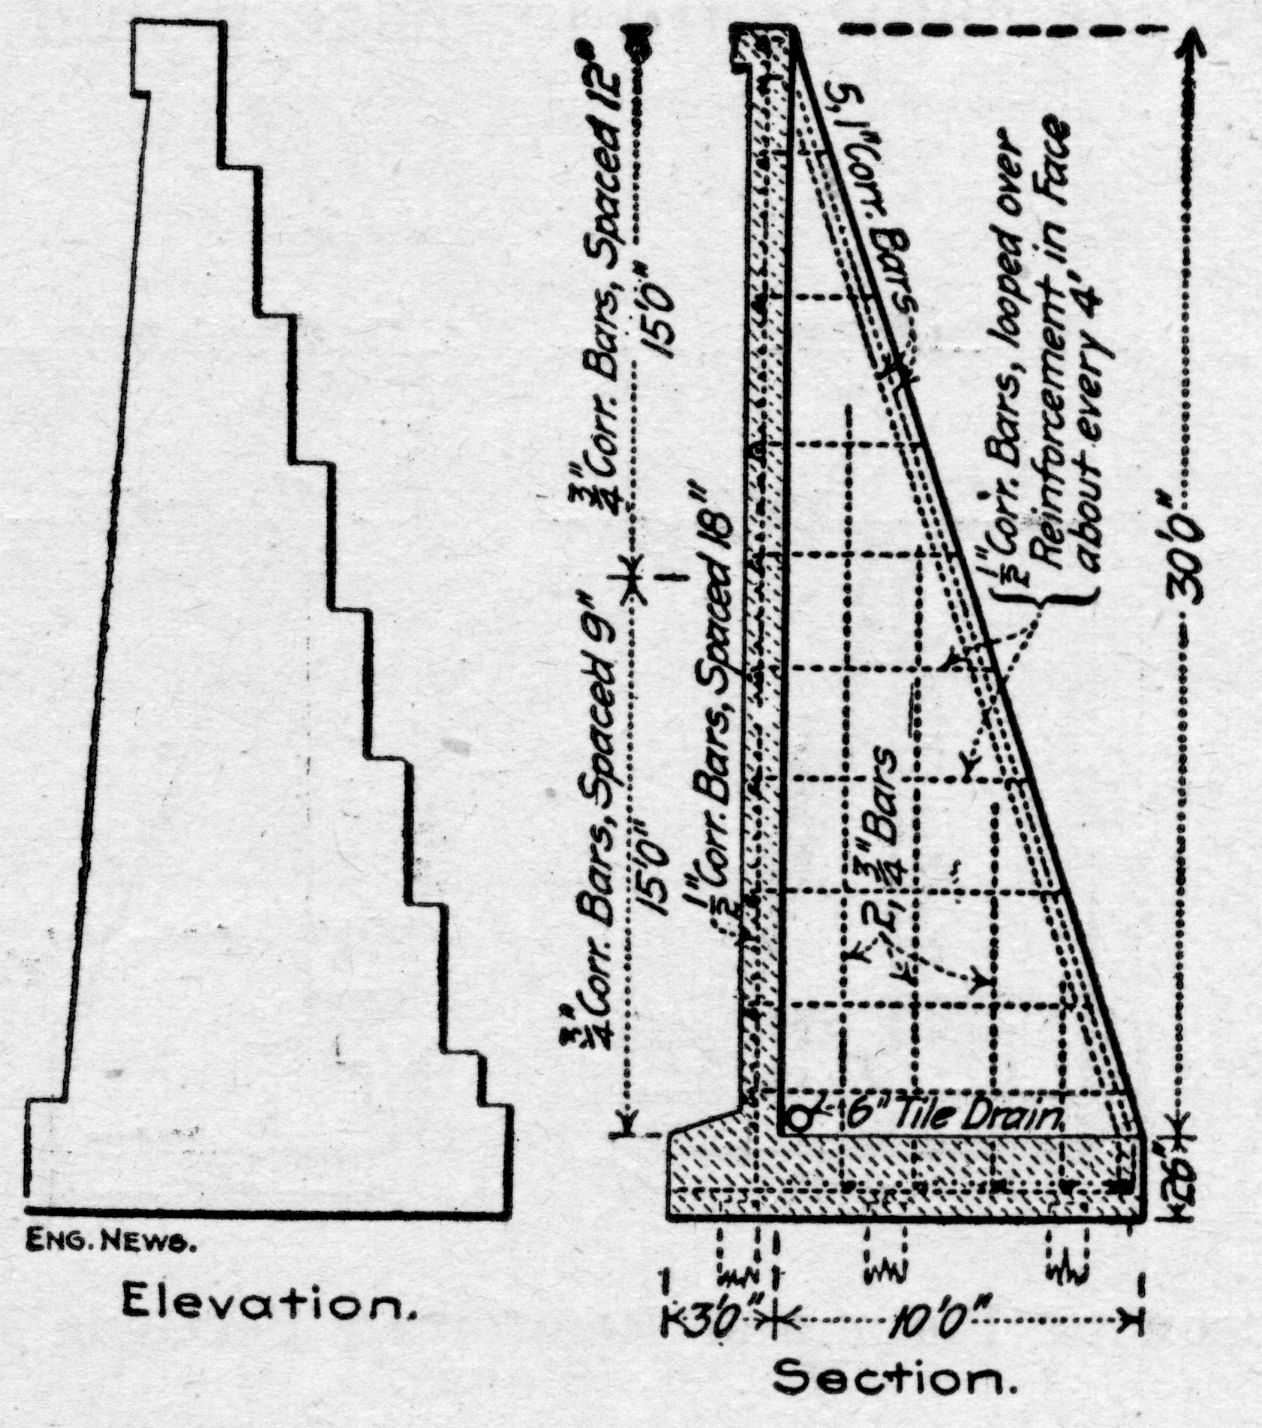 ¾" Corr. Bars, Spaced 12"
15'0"
¾" Corr. Bars, Spaced 9"
15'0"
½" Corr. Bars, Spaced 18"
5, 1" Corr. Bars
½" Corr. Bars, looped over
Reinforcement, in Face
about every 4'
30'0"
2, ¾" Bars
6" Tile Drain
2'6"
3'0"
10'0"
ENG. NEWS.
Elevation.
Section.